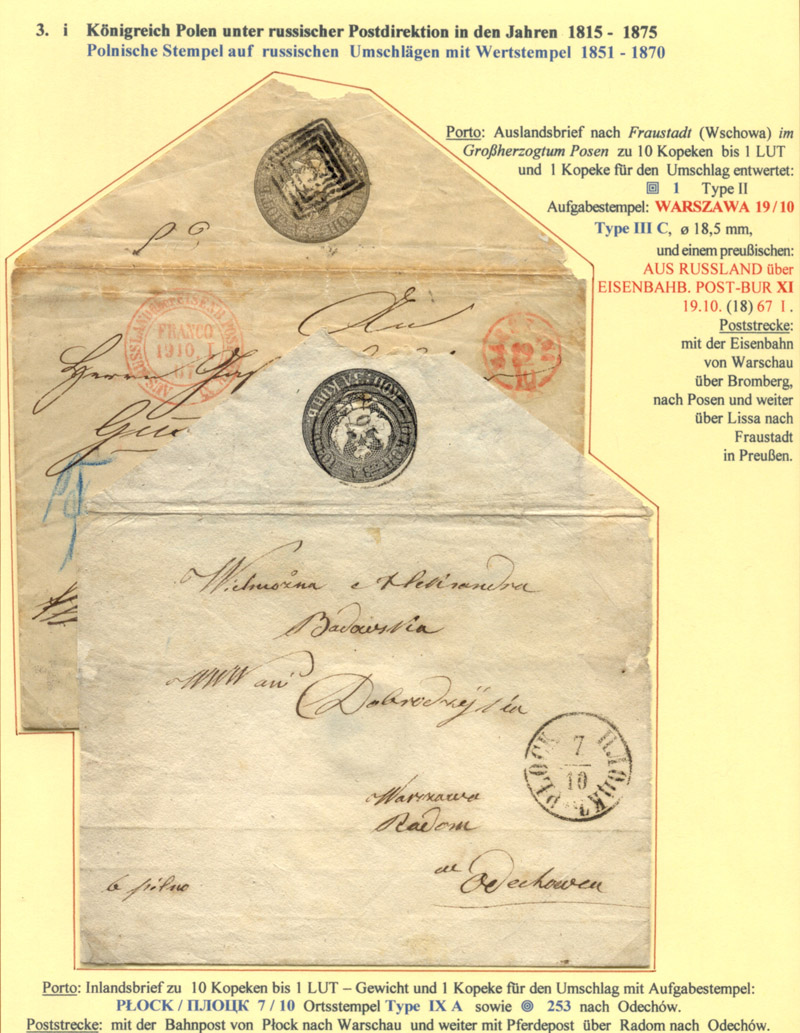 3. i Königreich Polen unter russischer Postdirektion in den Jahren 1815 - 1875
Polnische Stempel auf russischen Umschlägen mit Wertstempel 1851 - 1870
Porto: Auslandsbrief nach Fraustadt (Wschowa) im
Großherzogtum Posen zu 10 Kopeken bis 1 LUT
und 1 Kopeke für den Umschlag entwertet:
1 Type II
Aufgabestempel: WARSZAWA 19/10
Type III C, ø 18,5 mm,
und einem preußischen:
AUS RUSSLAND über
EISENBAHB. POST-BUR XI
19.10. (18) 67 I.
Poststrecke:
mit der Eisenbahn
von Warschau
über Bromberg,
nach Posen und weiter
über Lissa nach
Fraustadt
in Preußen.
AUS RUSSLAND über EISENB. POST
FRANCO
19 10. I
67
19
10
An
Herrn
Wielmożna Aleksandra
Badowska
WWW ani
Dobrodzijka
PŁOCK ПЛОЦКЪ
7
10
Warszawa
Radom
Odechowen
b pilno
Porto: Inlandsbrief zu 10 Kopeken bis 1 LUT – Gewicht und 1 Kopeke für den Umschlag mit Aufgabestempel:
PŁOCK / ПЛОЦК 7 / 10 Ortsstempel Type IX A sowie 253 nach Odechów.
Poststrecke: mit der Bahnpost von Płock nach Warschau und weiter mit Pferdepost über Radom nach Odechów.